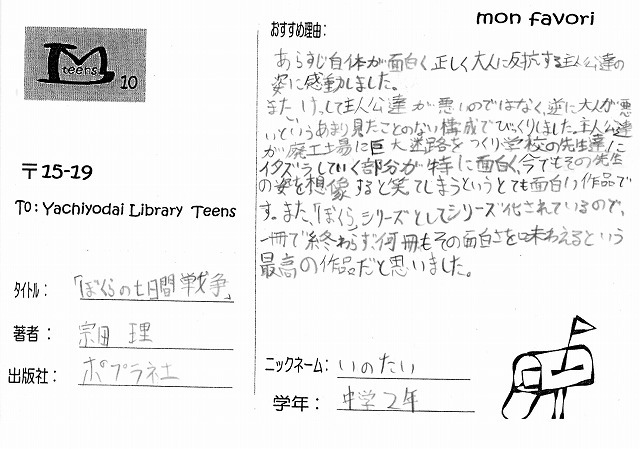 mon favori
M
teens
10
〒15-19
TO: Yachiyodai Library Teens
タイトル: 「ぼくらの七日間戦争」
著者: 宗田 理
出版社: ポプラ社
おすすめ理由:
あらすじ自体が面白く正しく大人に反抗する主人公達の
姿に感動しました。
また、けっして主人公達が悪いのではなく、逆に大人が悪
いというあまり見たことのない構成でびっくりしました。主人公達
が廃工場に巨大迷路をつくり学校の先生達に
イタズラしていく部分が特に面白く、今でもその先生
の姿を想像すると笑てしまうというとても面白い作品で
す。また、「ぼくら」シリーズとしてシリーズ化されているので、
一冊で終わらず、何冊もその面白さを味わえるという
最高の作品だと思いました。
ニックネーム: いのたい
学年: 中学2年